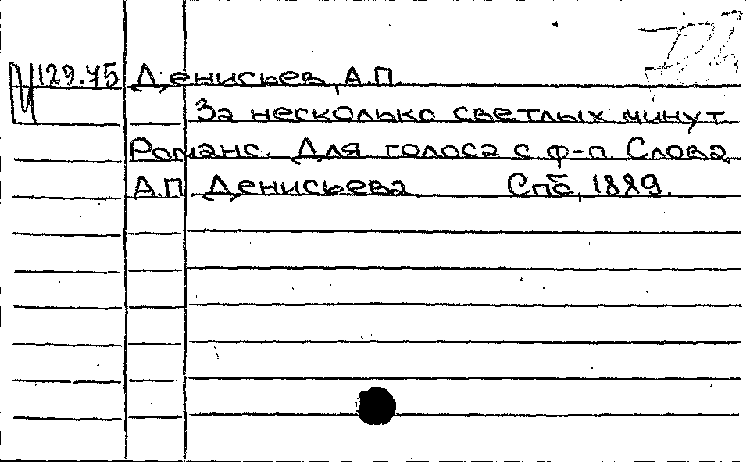 129.45 Денисьев, А.П.
За несколько светлых минут.
Романс. Для голоса с ф-п. Слова
А.П. Денисьева Спб, 1889.